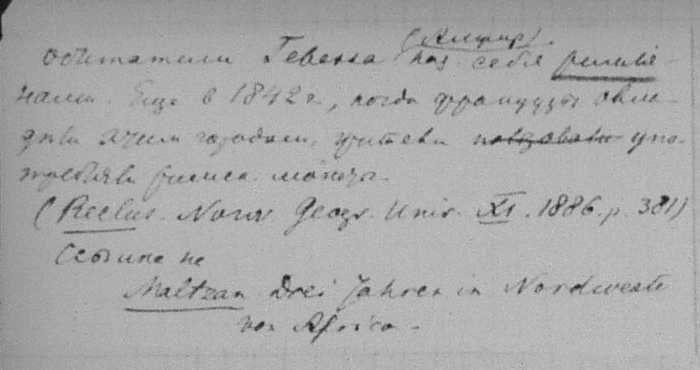 (Алжир).
обитатели Тебесса наз. себя римля-
нами. Еще в 1842 г., когда французы овла-
дели этим городом, жители употре-
требляли римск. монеты.
(Reclus. Nouv. Geogr. Univ. XI. 1886. p. 381)
Ссылка на
Maltzan Drei Jahren in Nordwesten
von Africa.